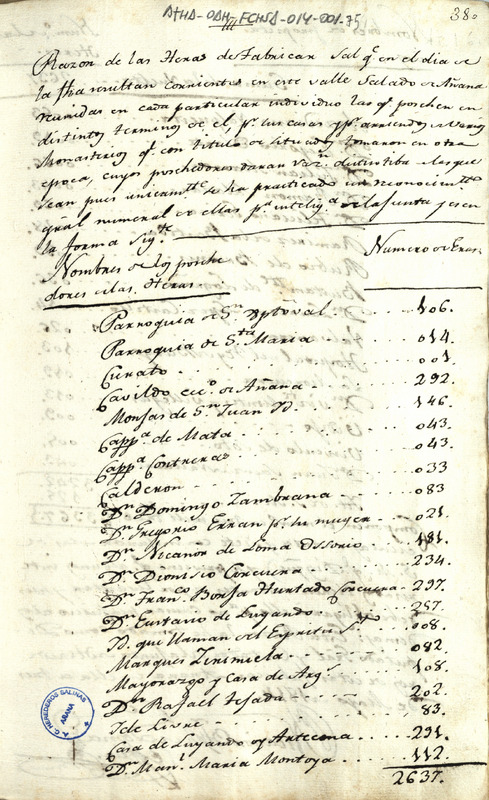 ATHA-DAH-FCHSA-014-001-75
38.
Razon de las Heras de Fabricar Sal qe. en el dia de
la fha resultan corrientes en este valle Salado de Añana
reunidas en cada particular individuo las qe. poseehen en
distintos terminos de el, pr. sus casas y pr. arriendos de varios
Monasterios qe. con titulo de situados tomaron en otra
epoca, cuyos poseehedores daran razn. distintiba de las que
sean pues unicamte. se ha practicado un reconocimto.
gral numeral de ellas pa. inteliga. de la Junta y es en
la forma sigte.
Nombres de los poseehe
dores de las Heras
Numero de Eras
Parroquia de Sn. Xptoval 106.
Parroquia de Sta. Maria 014.
Curato 001.
Cavildo ecco. de Añana 292.
Monjas de Sn. Juan Yd. 146.
Cappa. de Mata 043.
Cappa. Contreras 043.
Calderon 033
Dn. Domingo Zambrana 083
Dn. Gregorio Erran pr. su muger 021.
Dn. Nicanor de Loma Ossorio 181.
Dn. Dionisio Corcuera 234.
Dn. Franco. Borja Hurtado Corcuera 297.
Dn. Eustasio de Luyando 257.
Yd. que llaman del Espiritu Sto. 008.
Marques Terimiela 082.
Mayorazgo y Casa de Arge. 108.
Dn. Rafael Tejada 202.
Yd. Livre 83.
Casa de Luyando oy Antecona 291.
Dn. Man. Maria Montoya 112.
2637.
T. C. HEREDEROS SALINAS
AÑANA